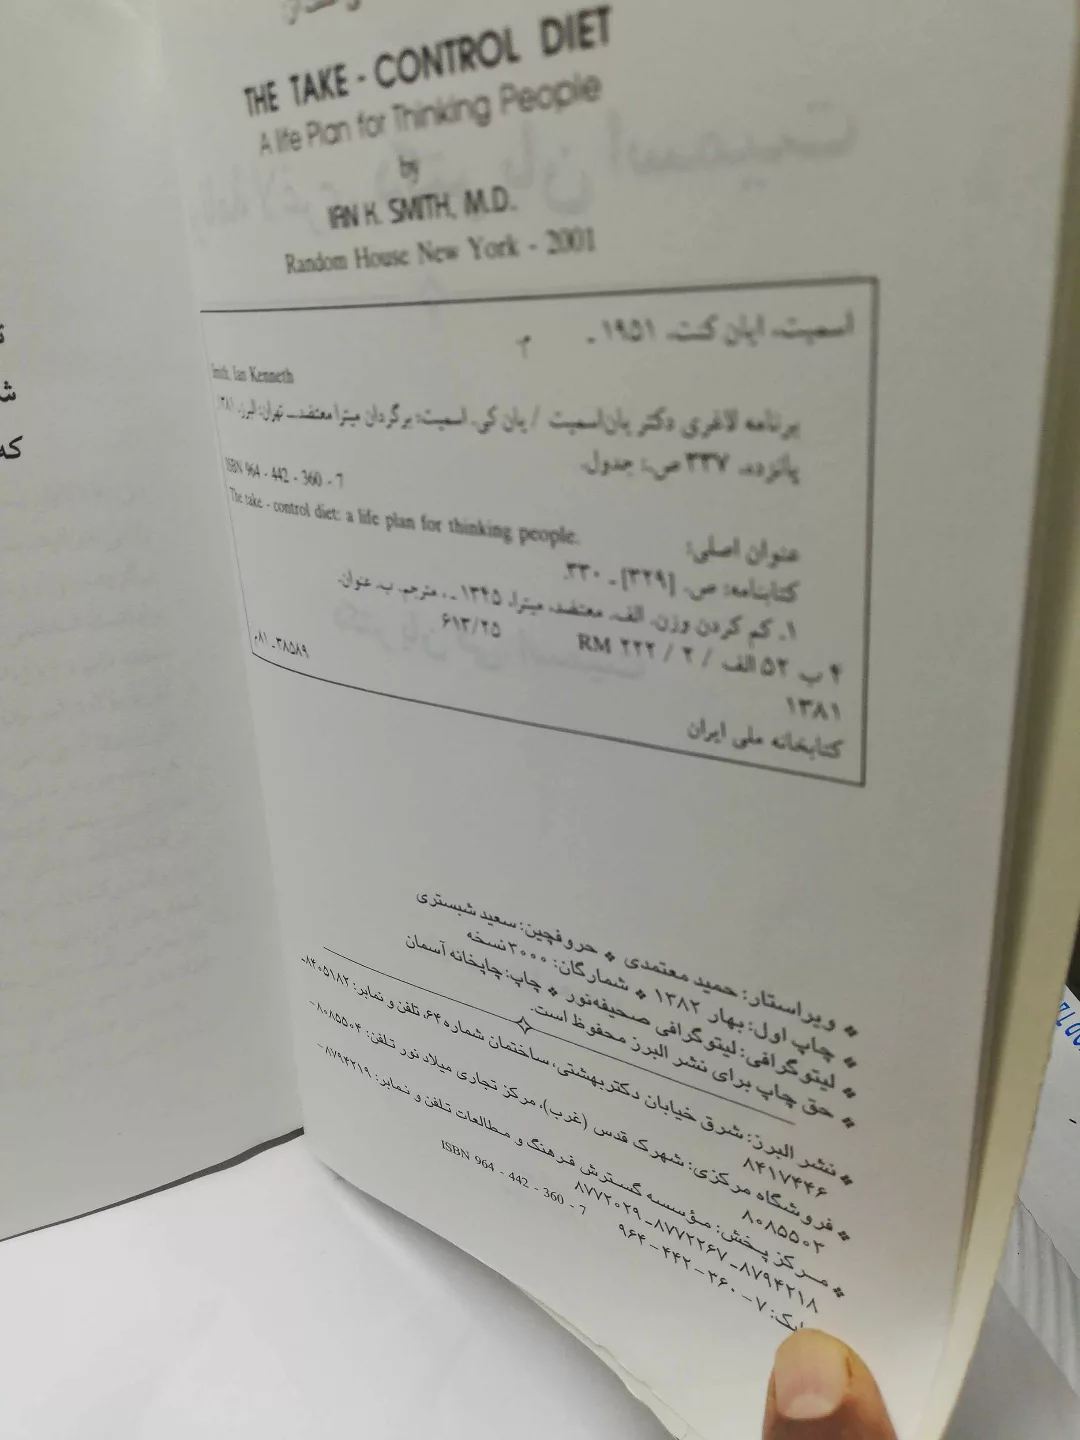 THE TAKE - CONTROL DIET
A life Plan for Thinking People
by
IAN K. SMITH, M.D.
Random House New York - 2001
اسمیت، ایان کنت، ۱۹۵۱ -
Smith, Ian Kenneth
برنامه لاغری دکتر یان‌اسمیت / یان کی. اسمیت؛ برگردان میترا معتضد. ـ تهران: البرز، ۱۳۸۱
پانزده، ۳۳۷ ص.: جدول.
ISBN 964 - 442 - 360 - 7
The take - control diet: a life plan for thinking people.
عنوان اصلی:
کتابنامه: ص. [۳۲۹] ـ ۳۳۰.
۱. کم کردن وزن. الف. معتضد، میترا، ۱۳۴۵ ـ ، مترجم. ب. عنوان.
۴ ب ۵۲ الف / ۲ / ۲۲۲ RM ۶۱۳/۲۵
۱۳۸۱
کتابخانه ملی ایران ۳۸۵۸۹ـ۸۱م
❖ ویراستار: حمید معتمدی ❖ حروفچین: سعید شبستری
❖ چاپ اول: بهار ۱۳۸۲ ❖ شمارگان: ۳۰۰۰ نسخه
❖ لیتوگرافی: لیتوگرافی صحیفه‌نور ❖ چاپ: چاپخانه آسمان
❖ حق چاپ برای نشر البرز محفوظ است.
❖ نشر البرز: شرق خیابان دکتربهشتی، ساختمان شماره ۶۴، تلفن و نمابر: ۸۴۰۵۱۸۲-
۸۴۱۷۴۴۶
❖ فروشگاه مرکزی: شهرک قدس (غرب)، مرکز تجاری میلاد نور تلفن: ۸۰۸۵۵۰۴-
۸۰۸۵۵۰۳
❖ مرکز پخش: مؤسسه گسترش فرهنگ و مطالعات تلفن و نمابر: ۸۷۹۴۲۱۹-
۸۷۹۴۲۱۸-۸۷۷۲۲۶۷-۸۷۷۲۰۲۹
ISBN 964 - 442 - 360 - 7
۹۶۴ - ۴۴۲ - ۳۶۰ - ۷
که